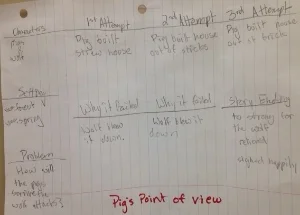 Characters
Pigs
wolf
1st Attempt
Pig built
straw house
2nd Attempt
Pig built house
out of sticks
3rd Attempt
Pig built house
out of brick
Setting
Why it Failed
Wolf blew
it down.
Why it failed
Wolf blew it
down
Story Ending
to strong for
the wolf
happily
Problem
How will
the pigs
survive the
wolf attacks?
Pig's Point of view